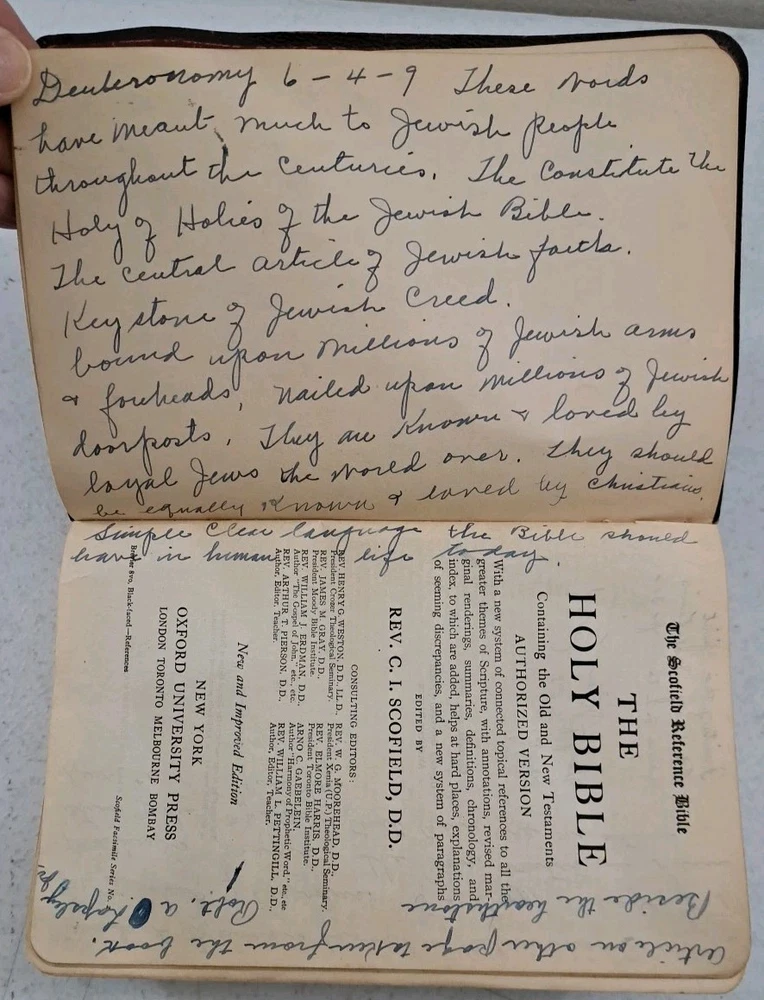 Deuteronomy 6-4-9 These words
have meant much to Jewish people
throughout the centuries. The Constitute the
Holy of Holies of the Jewish Bible.
The central article of Jewish faith.
Keystone of Jewish Creed.
bound upon millions of Jewish arms
& foreheads, nailed upon millions of Jewish
doorposts. They are Known & loved by
loyal Jews the world over. They should
be equally Known & loved by Christians.
Simple Clear language the Bible should
have in human life today.
The Scofield Reference Bible
THE
HOLY BIBLE
Containing the Old and New Testaments
AUTHORIZED VERSION
With a new system of connected topical references to all the
greater themes of Scripture, with annotations, revised mar-
ginal renderings, summaries, definitions, chronology, and
index, to which are added, helps at hard places, explanations
of seeming discrepancies, and a new system of paragraphs
EDITED BY
REV. C. I. SCOFIELD, D.D.
CONSULTING EDITORS:
REV. HENRY G. WESTON, D.D., LL.D.,
President Crozer Theological Seminary.
REV. JAMES M. GRAY, D.D.,
President Moody Bible Institute.
REV. WILLIAM J. ERDMAN, D.D.,
Author "The Gospel of John," etc., etc.
REV. ARTHUR T. PIERSON, D.D.,
Author, Editor, Teacher.
REV. W. G. MOOREHEAD, D.D.,
President Xenia (U.P.) Theological Seminary.
REV. ELMORE HARRIS, D.D.,
President Toronto Bible Institute.
ARNO C. GAEBELEIN,
Author "Harmony of Prophetic Word," etc., etc
REV. WILLIAM L. PETTINGILL, D.D.,
Author, Editor, Teacher.
New and Improved Edition
NEW YORK
OXFORD UNIVERSITY PRESS
LONDON TORONTO MELBOURNE BOMBAY
8vo, Black-faced—References
Scofield Facsimile Series No.
article on other page taken from the book.
Beside the hearthstone
Robt. a